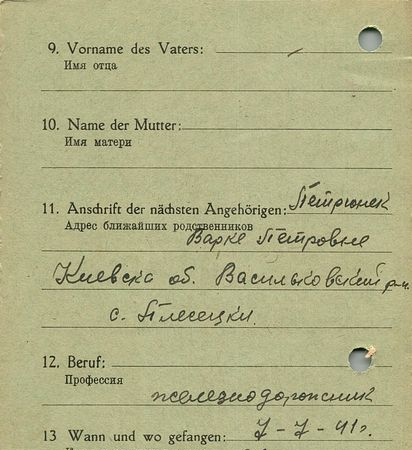 9. Vorname des Vaters: —
Имя отца
10. Name der Mutter:
Имя матери
11. Anschrift der nächsten Angehörigen: Петрюнек
Адрес ближайших родственников
Варке Петровне
Киевска об. Васильковский р-н.
с. Плесецки.
12. Beruf:
Профессия
железнодорожник
13 Wann und wo gefangen: 7-7-41г.